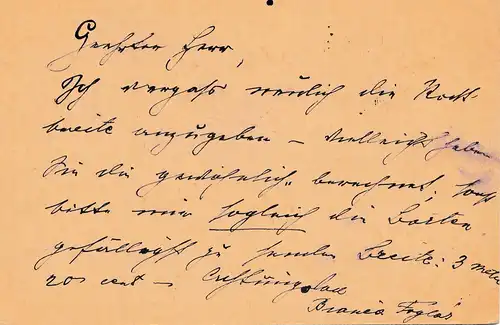 Geehrter Herr,
Ich vergass neulich die Rock-
breite anzugeben – vielleicht haben
Sie die gewöhnlich berechnet; sonst
bitte mir sogleich die Borten
gefälligst zu senden Breite: 3 mete
20 cent – Achtungsvoll
Bianca